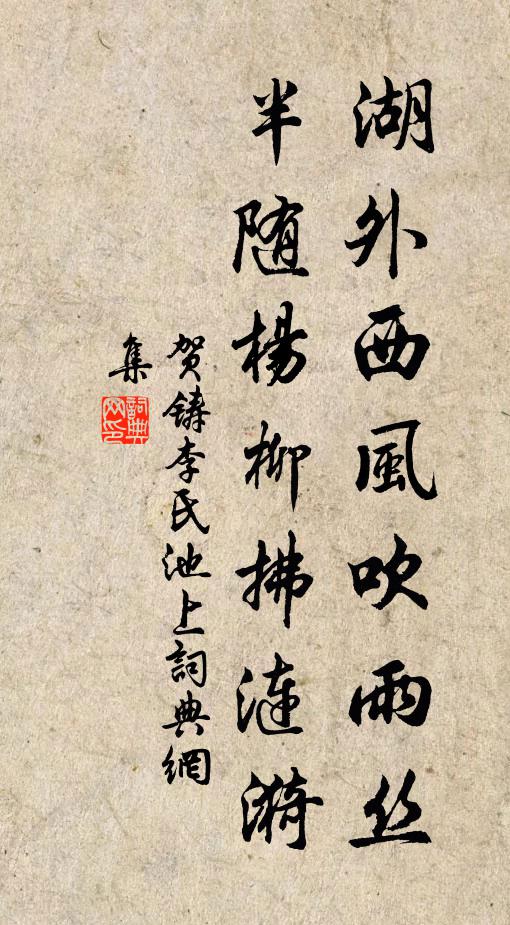 湖外西風吹雨丝
半随楊柳拂漣漪
贺铸李氏池上詞典網
集
詞典网印